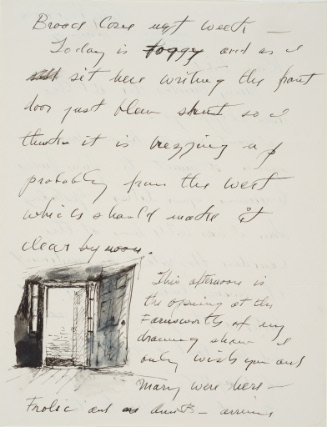 Broad Cove next week —
Today is foggy and as I
sit here writing the front
door just blew shut so I
think it is breezing up
probably from the west
which should make it
clear by noon.
This afternoon is
the opening at the
Farnsworth of my
drawing show I
only wish you and
Mary were here —
Frolic and